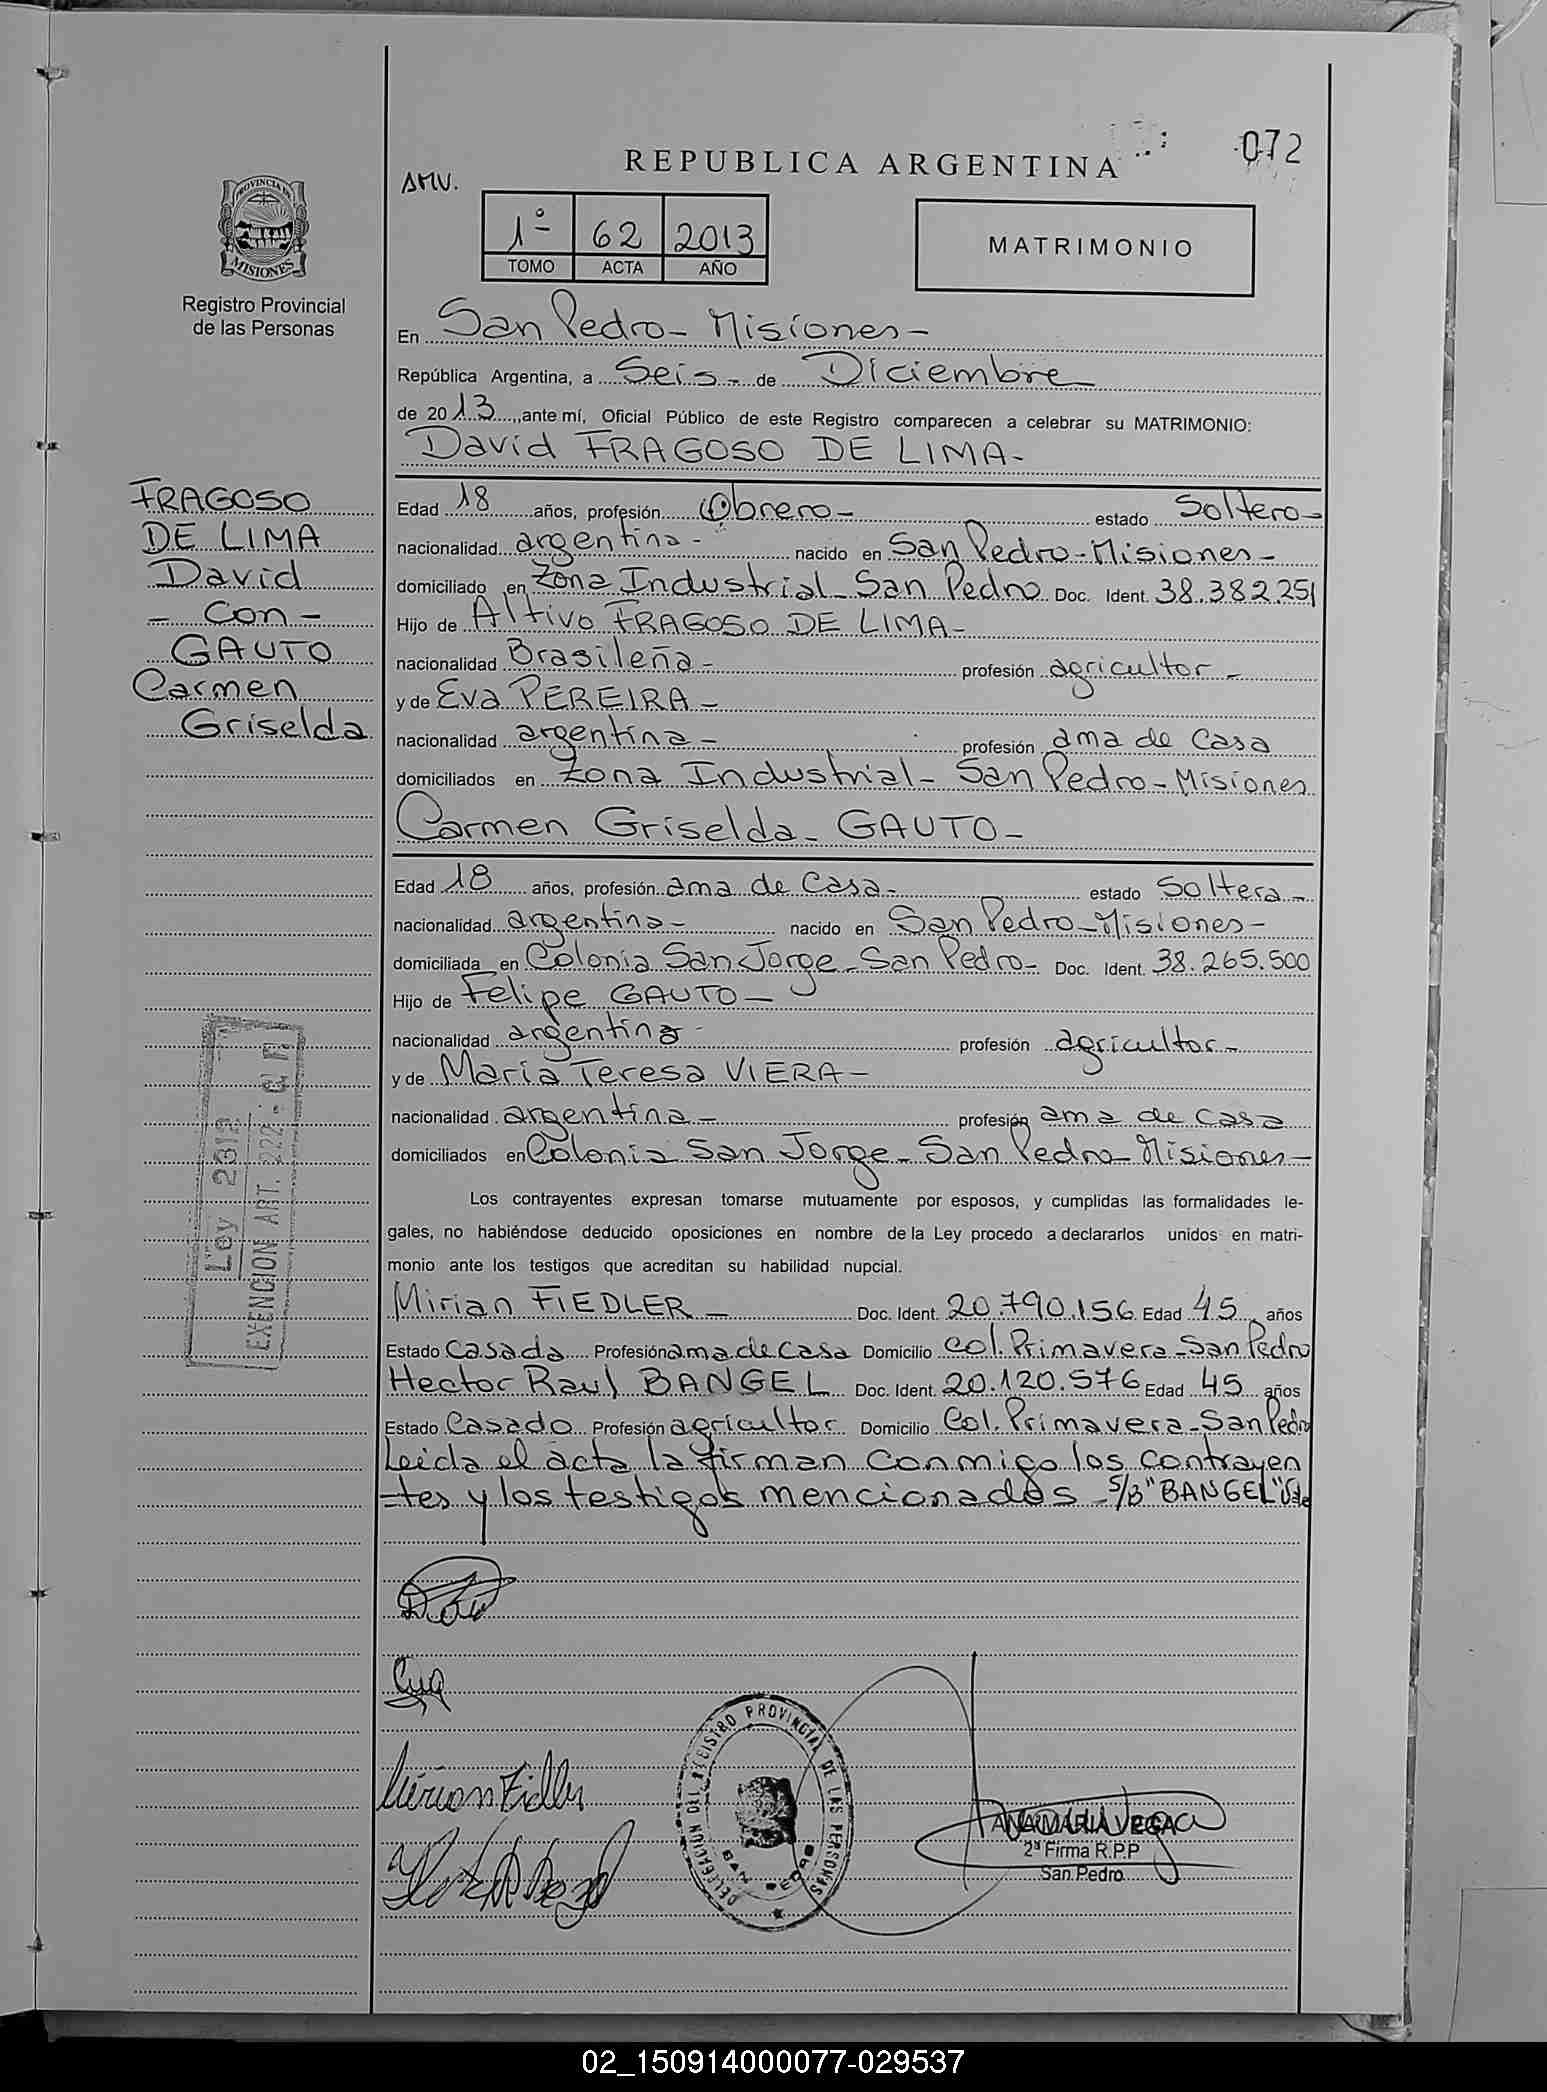 072
REPUBLICA ARGENTINA
AMV.
1º 62 2013
TOMO ACTA AÑO
MATRIMONIO
PROVINCIA DE
MISIONES
Registro Provincial
de las Personas
En San Pedro - Misiones -
República Argentina, a Seis - de Diciembre
de 2013, ante mí, Oficial Público de este Registro comparecen a celebrar su MATRIMONIO:
David FRAGOSO DE LIMA -
FRAGOSO
DE LIMA
David
- con -
GAUTO
Carmen
Griselda
Edad 18 años, profesión Obrero - estado Soltero -
nacionalidad argentina - nacido en San Pedro - Misiones -
domiciliado en Zona Industrial - San Pedro Doc. Ident. 38.382.251
Hijo de Altivo FRAGOSO DE LIMA -
nacionalidad Brasileña - profesión agricultor -
y de Eva PEREIRA -
nacionalidad argentina - profesión ama de casa
domiciliados en Zona Industrial - San Pedro - Misiones
Carmen Griselda - GAUTO -
Edad 18 años, profesión ama de casa - estado Soltera -
nacionalidad argentina - nacido en San Pedro - Misiones -
domiciliada en Colonia San Jorge - San Pedro - Doc. Ident. 38.265.500
Hijo de Felipe GAUTO -
nacionalidad argentina - profesión agricultor -
y de María Teresa VIERA -
nacionalidad argentina - profesión ama de casa
domiciliados en Colonia San Jorge - San Pedro - Misiones -
Ley 2313
EXENCION ART. 222
Los contrayentes expresan tomarse mutuamente por esposos, y cumplidas las formalidades le-
gales, no habiéndose deducido oposiciones en nombre de la Ley procedo a declararlos unidos en matri-
monio ante los testigos que acreditan su habilidad nupcial.
Mirian FIEDLER - Doc. Ident. 20.790.156 Edad 45 años
Estado Casada Profesión ama de casa Domicilio Col. Primavera - San Pedro
Hector Raul BANGEL Doc. Ident. 20.120.576 Edad 45 años
Estado Casado Profesión agricultor Domicilio Col. Primavera - San Pedro
Leida el acta la firman conmigo los contrayen
-tes y los testigos mencionados - S/B "BANGEL" Vale
Mirian Fidler
DELEGACION DEL REGISTRO PROVINCIAL DE LAS PERSONAS
SAN PEDRO
ANA MARIA VEGA
2ª Firma R.P.P
San Pedro
02_150914000077-029537